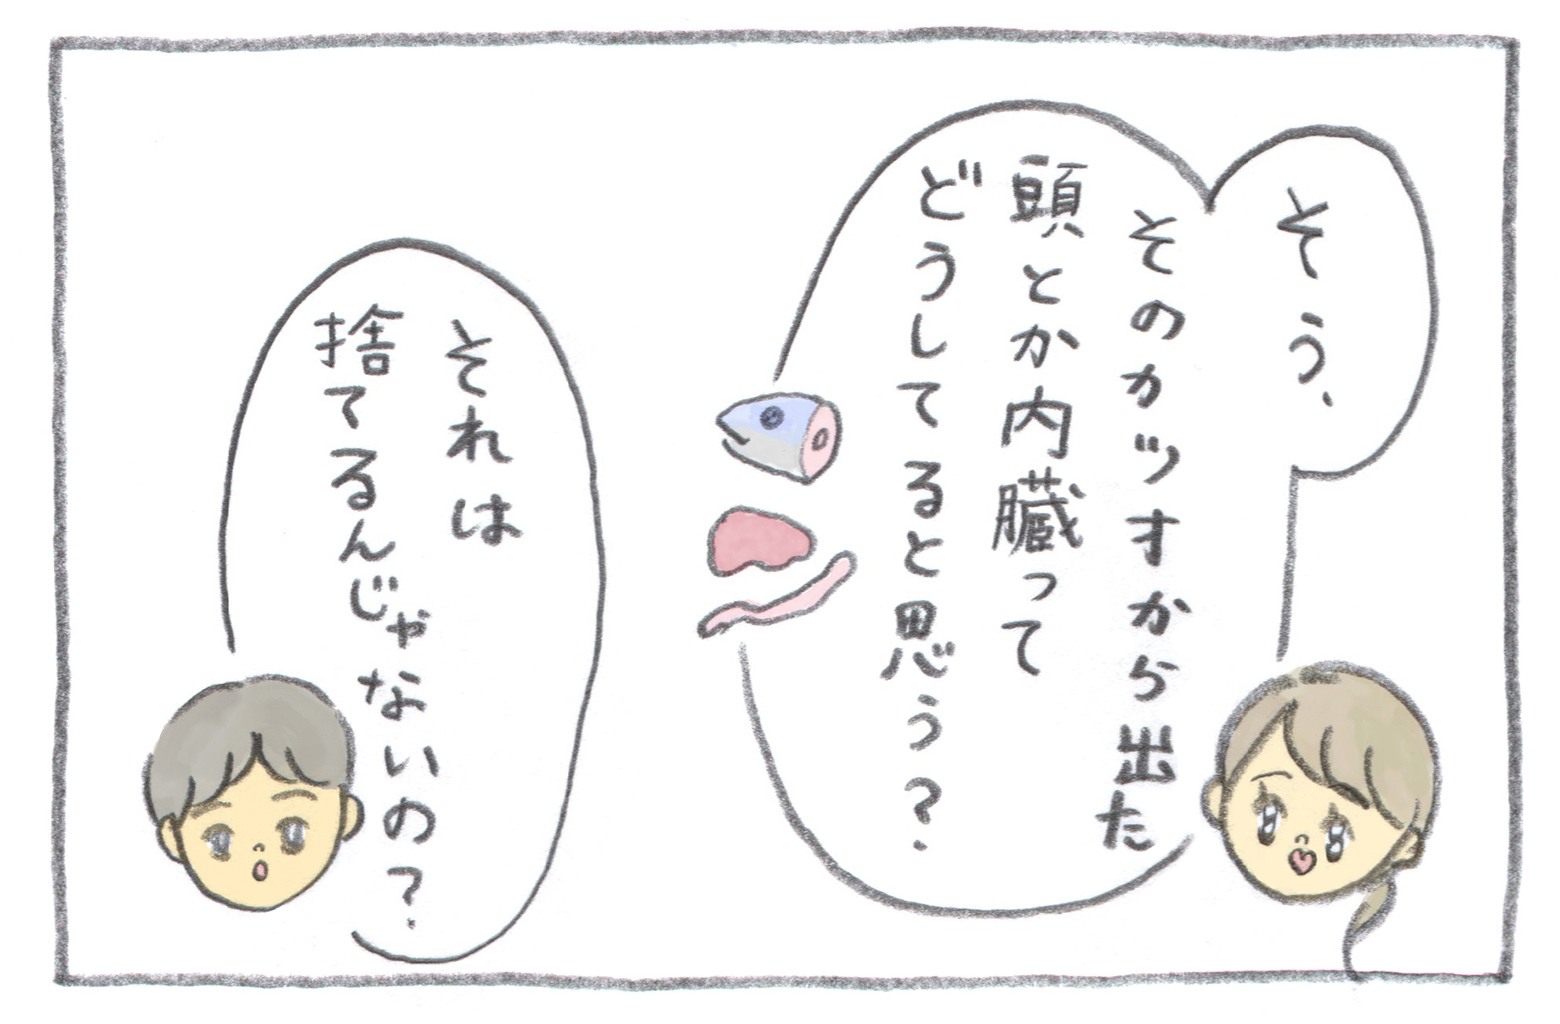 そう、
そのカツオから出た
頭とか内臓って
どうしてると思う？
それは
捨てるんじゃないの？